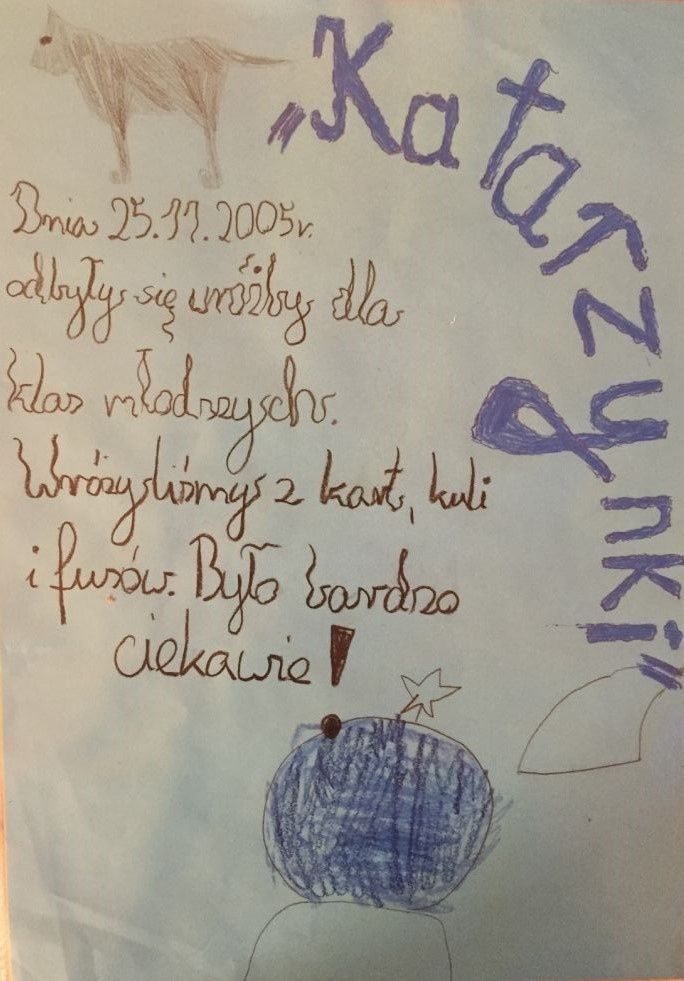 „Katarzynki”
Dnia 25.11.2005r.
odbyły się wróżby dla
klas młodszych.
Wróżyliśmy z kart, kuli
i fusów. Było bardzo
ciekawie!